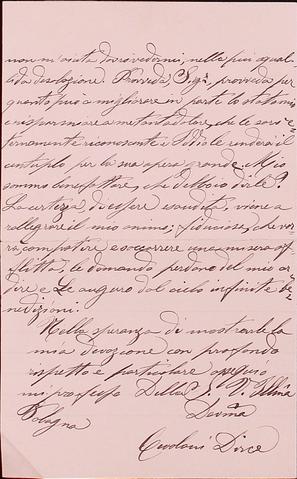 non m'aiuta dovrò vedermi, nella più squal-
lida desolazione Provveda Sig.r, provveda per
quanto può a migliorare in parte lo stato mio
e risparmiare a me tanto dolore, che le sarò e-
ternamente riconoscente e Iddio le renderà il
centuplo per la sua opera grande. Mio
sommo benefattore, che debbo dirle?
La certezza, di essere esaudita, viene a
rallegrare il mio animo; fiduciosa, che vor-
rà, compatire, e soccorrere una misera af-
flitta, le domando perdono del mio ar-
dire e Le auguro dal cielo infinite be-
nedizioni.
Nella speranza di mostrarle la
mia devozione con profondo
rispetto e particolare ossequio
mi professo Della S. V. Ill.ma
Dev.ma
Bologna
Dirce